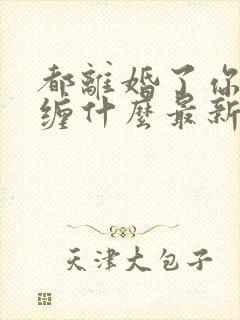 都離婚了你
缠什麼最新
天津大包子